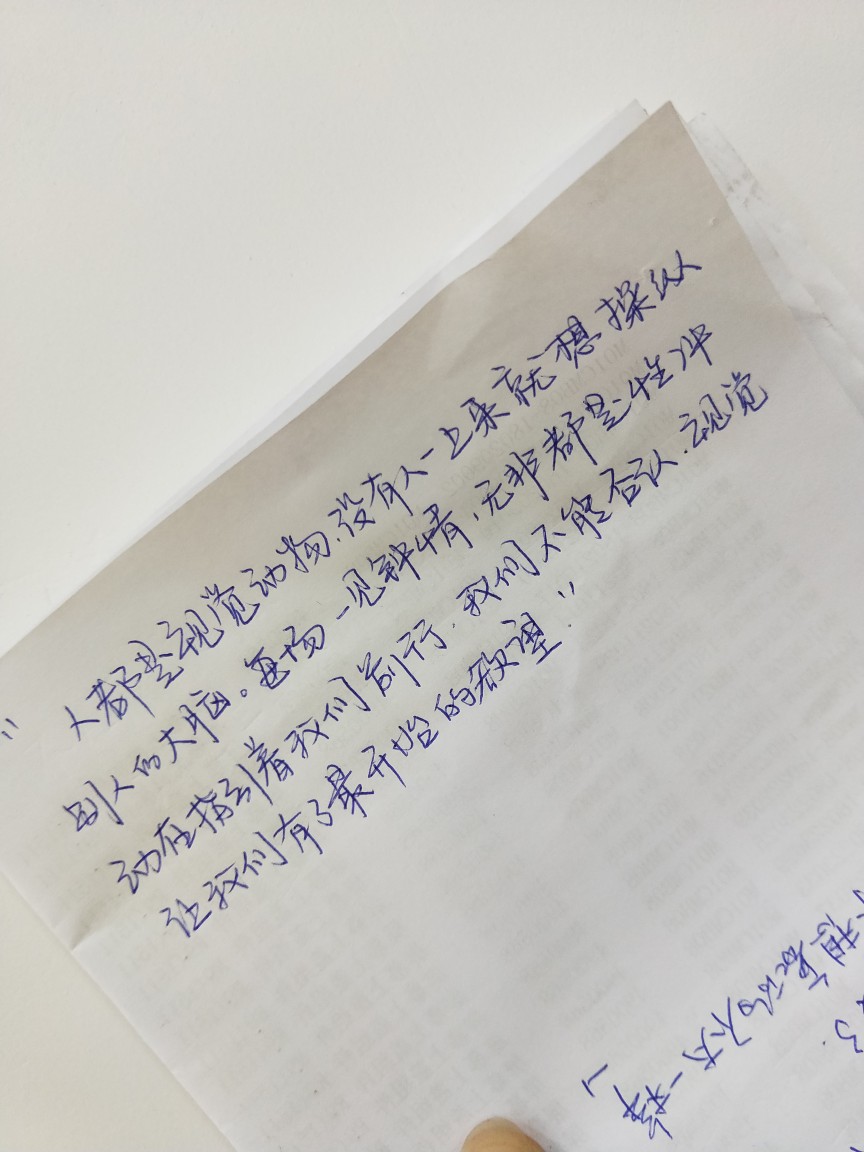 "人都是视觉动物、没有人一上来就想操纵
别人的大脑。每场一见钟情,无非都是性冲
动在指引着我们前行.我们不能否认.视觉
让我们有了最开始的欲望."